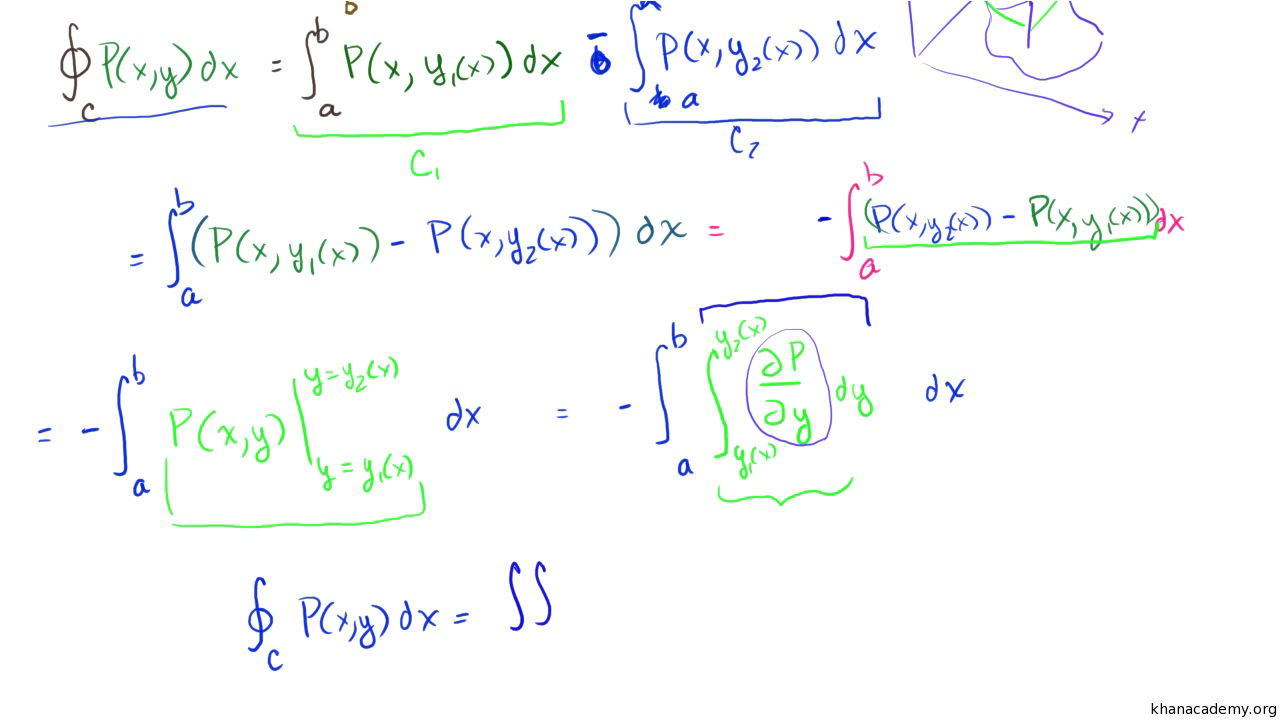 ∮_C P(x,y) dx = ∫_a^b P(x, y₁(x)) dx - ∫_a P(x, y₂(x)) dx
x
C₁
C₂
= ∫_a^b (P(x, y₁(x)) - P(x, y₂(x))) dx = - ∫_a^b (P(x, y₂(x)) - P(x, y₁(x))) dx
= - ∫_a^b P(x,y) |_{y = y₁(x)}^{y = y₂(x)} dx = - ∫_a^b ∫_{y₁(x)}^{y₂(x)} ∂P/∂y dy dx
∮_C P(x,y) dx = ∫∫
khanacademy.org